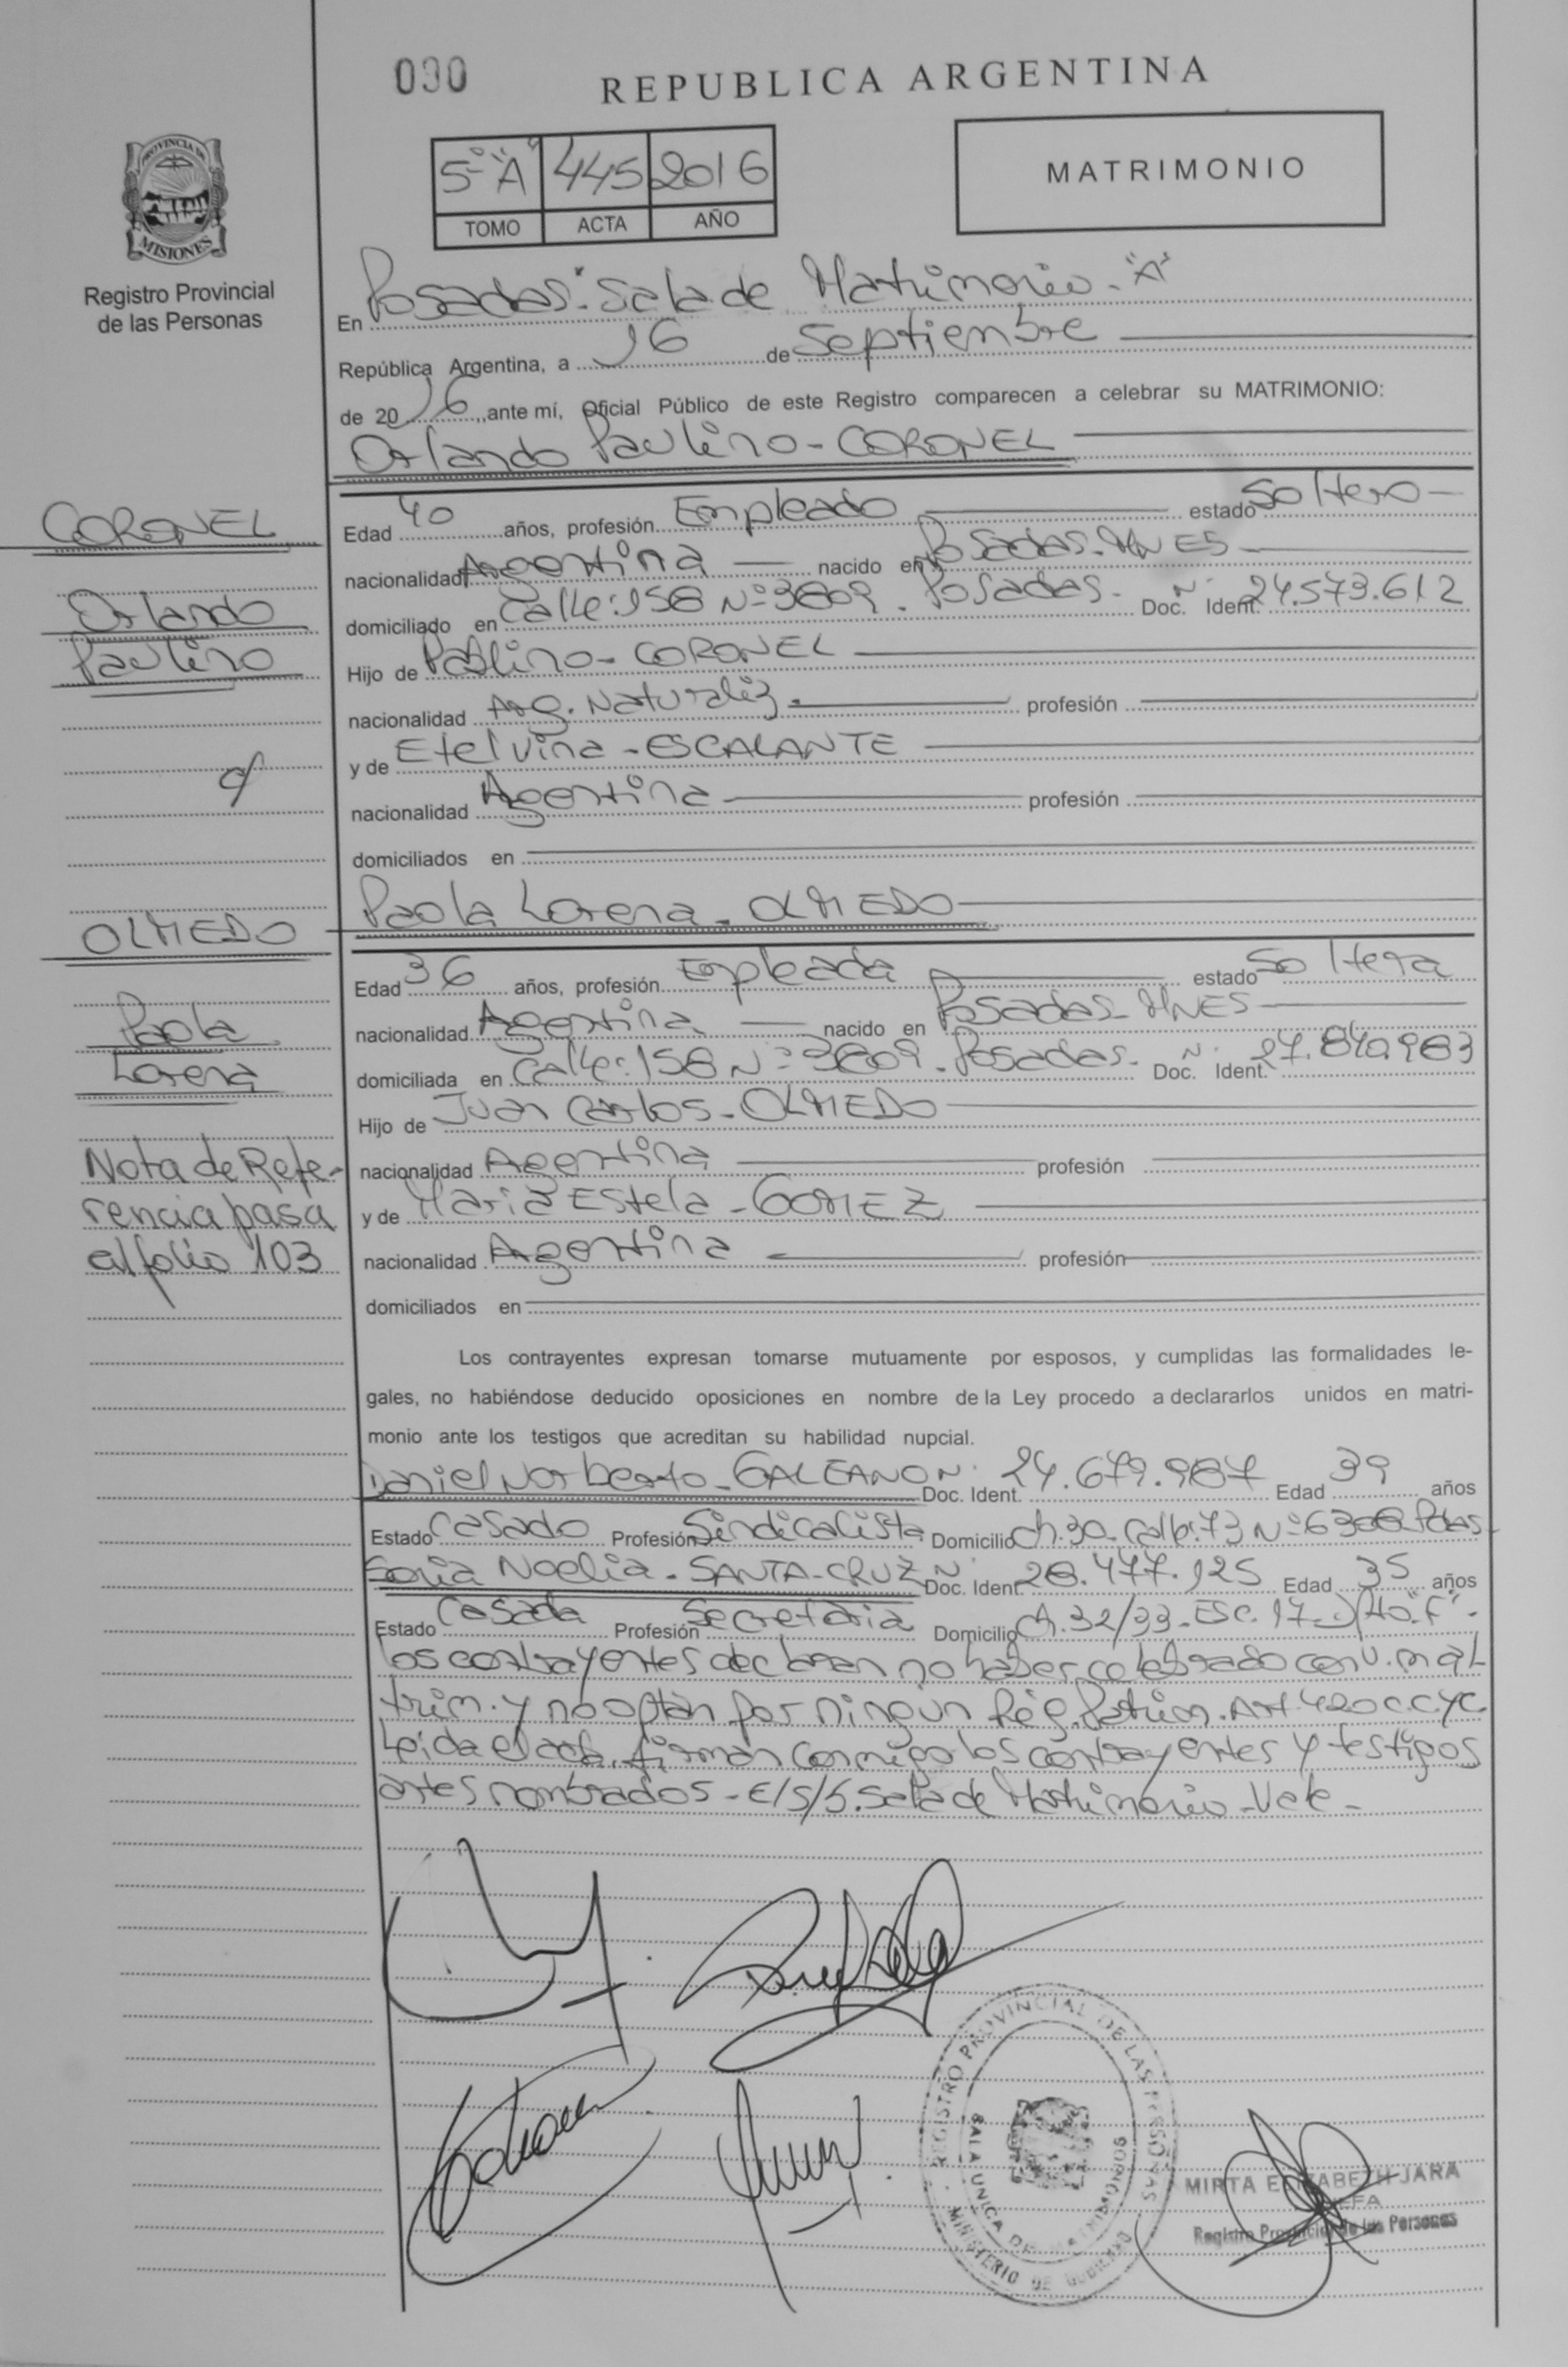 090
REPUBLICA ARGENTINA
PROVINCIA DE
MISIONES
Registro Provincial
de las Personas
5º "A" 445 2016
TOMO ACTA AÑO
MATRIMONIO
En Posadas: Sala de Matrimonio - "A"
República Argentina, a 16 de Septiembre
de 20 16 ,ante mí, Oficial Público de este Registro comparecen a celebrar su MATRIMONIO:
Orlando Paulino - CORONEL
CORONEL
Orlando
Paulino
Edad 40 años, profesión Empleado estado Soltero -
nacionalidad Argentina nacido en Posadas - MNES
domiciliado en Calle: 158 Nº 3809 - Posadas - Doc. Ident. Nº 24.573.612
Hijo de Paulino - CORONEL
nacionalidad Arg. Naturaliz. profesión
y de Etelvina - ESCALANTE
nacionalidad Argentina profesión
domiciliados en
Paola Lorena - OLMEDO
OLMEDO
Paola
Lorena
Edad 36 años, profesión Empleada estado Soltera
nacionalidad Argentina nacido en Posadas - MNES
domiciliada en Calle: 158 Nº 3809 - Posadas - Doc. Ident. Nº 27.840.983
Hijo de Juan Carlos - OLMEDO
nacionalidad Argentina profesión
y de Maria Estela - GOMEZ
nacionalidad Argentina profesión
domiciliados en
Nota de Refe-
rencia pasa
al folio 103
Los contrayentes expresan tomarse mutuamente por esposos, y cumplidas las formalidades le-
gales, no habiéndose deducido oposiciones en nombre de la Ley procedo a declararlos unidos en matri-
monio ante los testigos que acreditan su habilidad nupcial.
Daniel Norberto - GALEANO Doc. Ident. Nº 24.679.987 Edad 39 años
Estado Casado Profesión Sindicalista Domicilio Ch. 30 - Calle: 73 Nº 6308 - Pdas -
Sonia Noelia - SANTA-CRUZ Doc. Ident. Nº 28.477.125 Edad 35 años
Estado Casada Profesión Secretaria Domicilio Ch. 32/33 - Esc. 17 - "F" -
Los contrayentes declaran no haber celebrado conv. mat
trim. y no optan por ningun Rég. Patrim. Art 420 C.C.y C.
Leida el acta, firman conmigo los contrayentes y testigos
antes nombrados - E/S/S. Sala de Matrimonio - Vale -
REGISTRO PROVINCIAL DE LAS PERSONAS
SALA UNICA DE MATRIMONIOS
MINISTERIO DE GOBIERNO
MIRTA ELIZABETH JARA
JEFA
Registro Provincial de las Personas